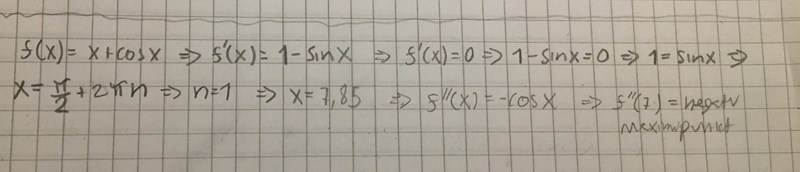 f(x) = x + cosx ⇒ f'(x) = 1 - sinx ⇒ f'(x) = 0 ⇒ 1 - sinx = 0 ⇒ 1 = sinx ⇒
x = π/2 + 2πn ⇒ n = 1 ⇒ x = 7,85 ⇒ f''(x) = -cosx ⇒ f''(7) = negativ
maximipunkt